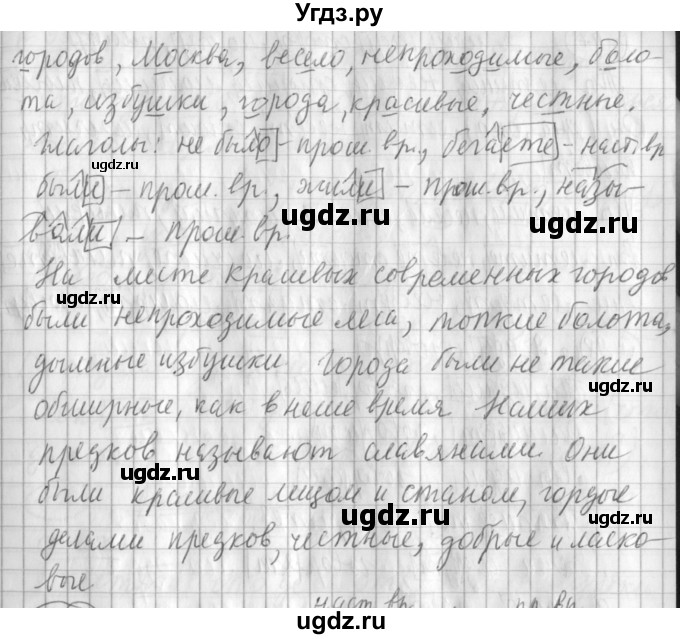 Угдз.ру
городов, Москва, весело, непроходимые, боло-
та, избушки, города, красивые, честные.
Глаголы: не было - прош. вр., бегаете - наст. вр
были - прош. вр., жили - прош. вр., назы-
вали - прош. вр.
ugdz.ru
ugdz.ru
На месте красивых современных городов
ugdz.ru
были непроходимые леса, топкие болота,
дымные избушки города были не такие
ugdz.ru
обширные, как в наше время Наших
предков называют славянами. Они
ugdz.ru
были красивые лицом и станом, гордые
ugdz.ru
ugdz.ru
делами предков, честные, добрые и ласко-
вые
наст вр.
ugdz.ru